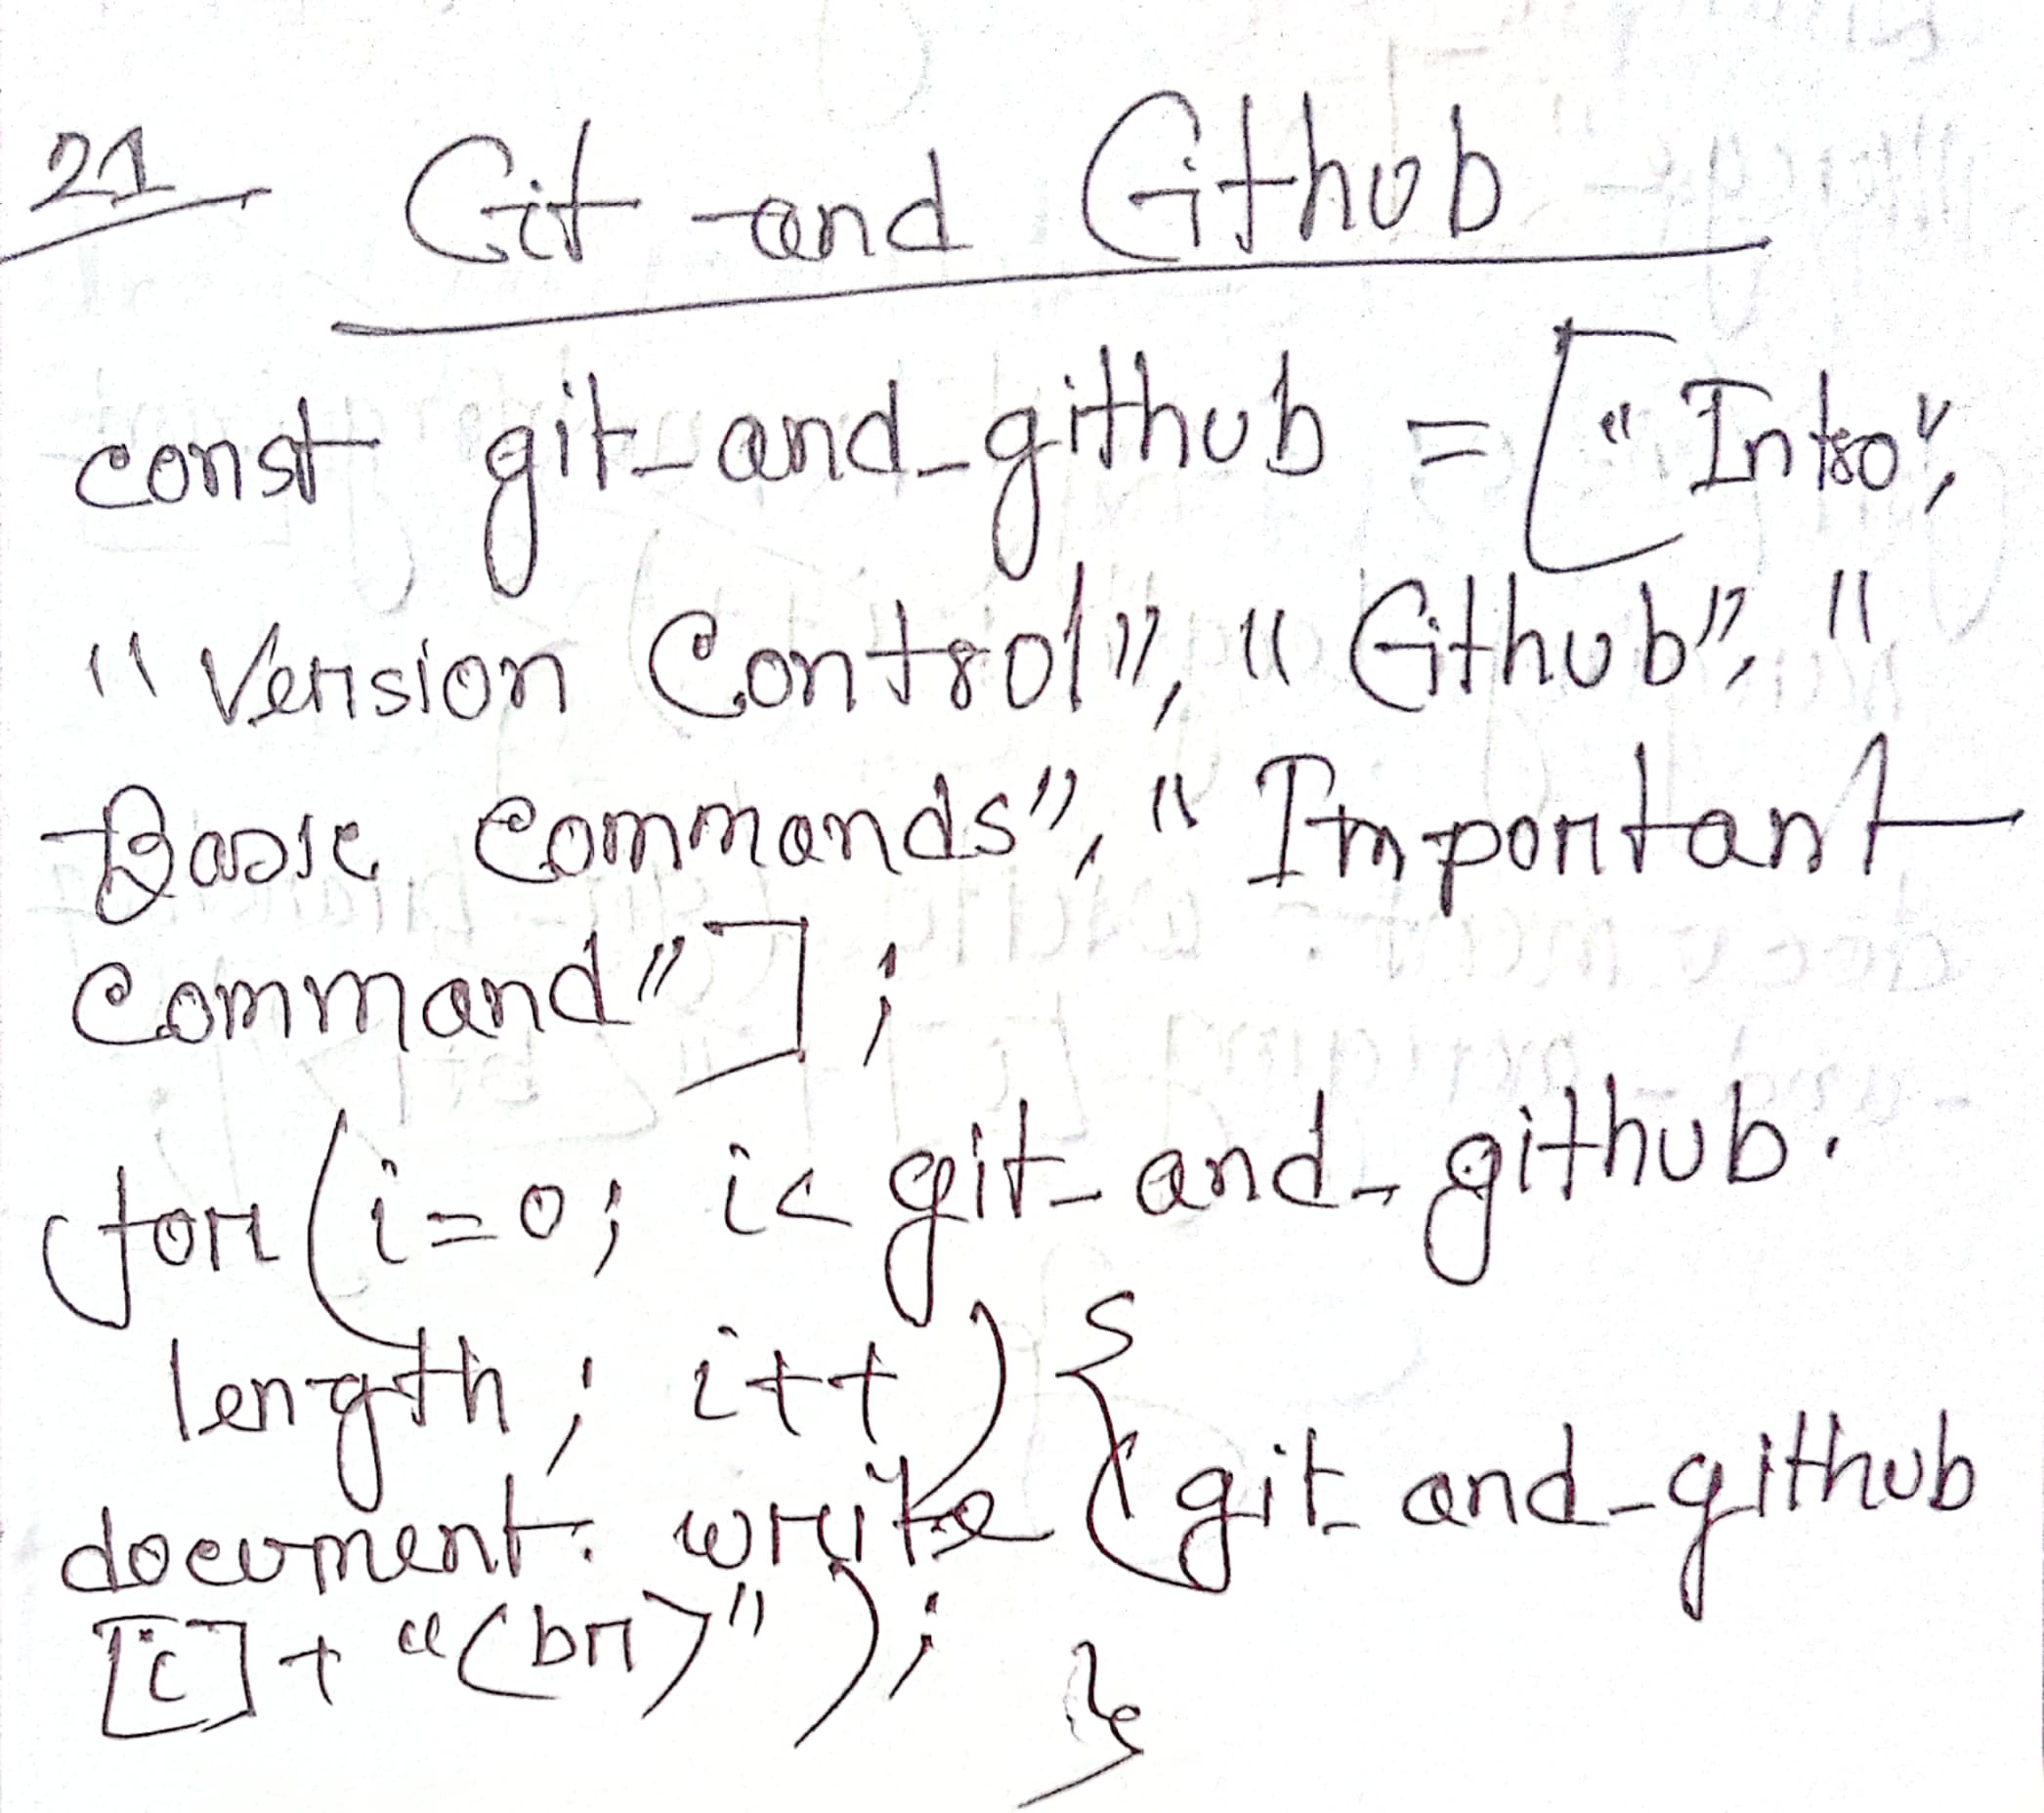 21 Git and Github
const git-and-github = ["Intro",
"Version Control", "Github", "
Basic Commands", "Important
Command"];
for(i=0; i< git-and-github.
length; i++){
document.write(git-and-github
[i]+"<br>");}